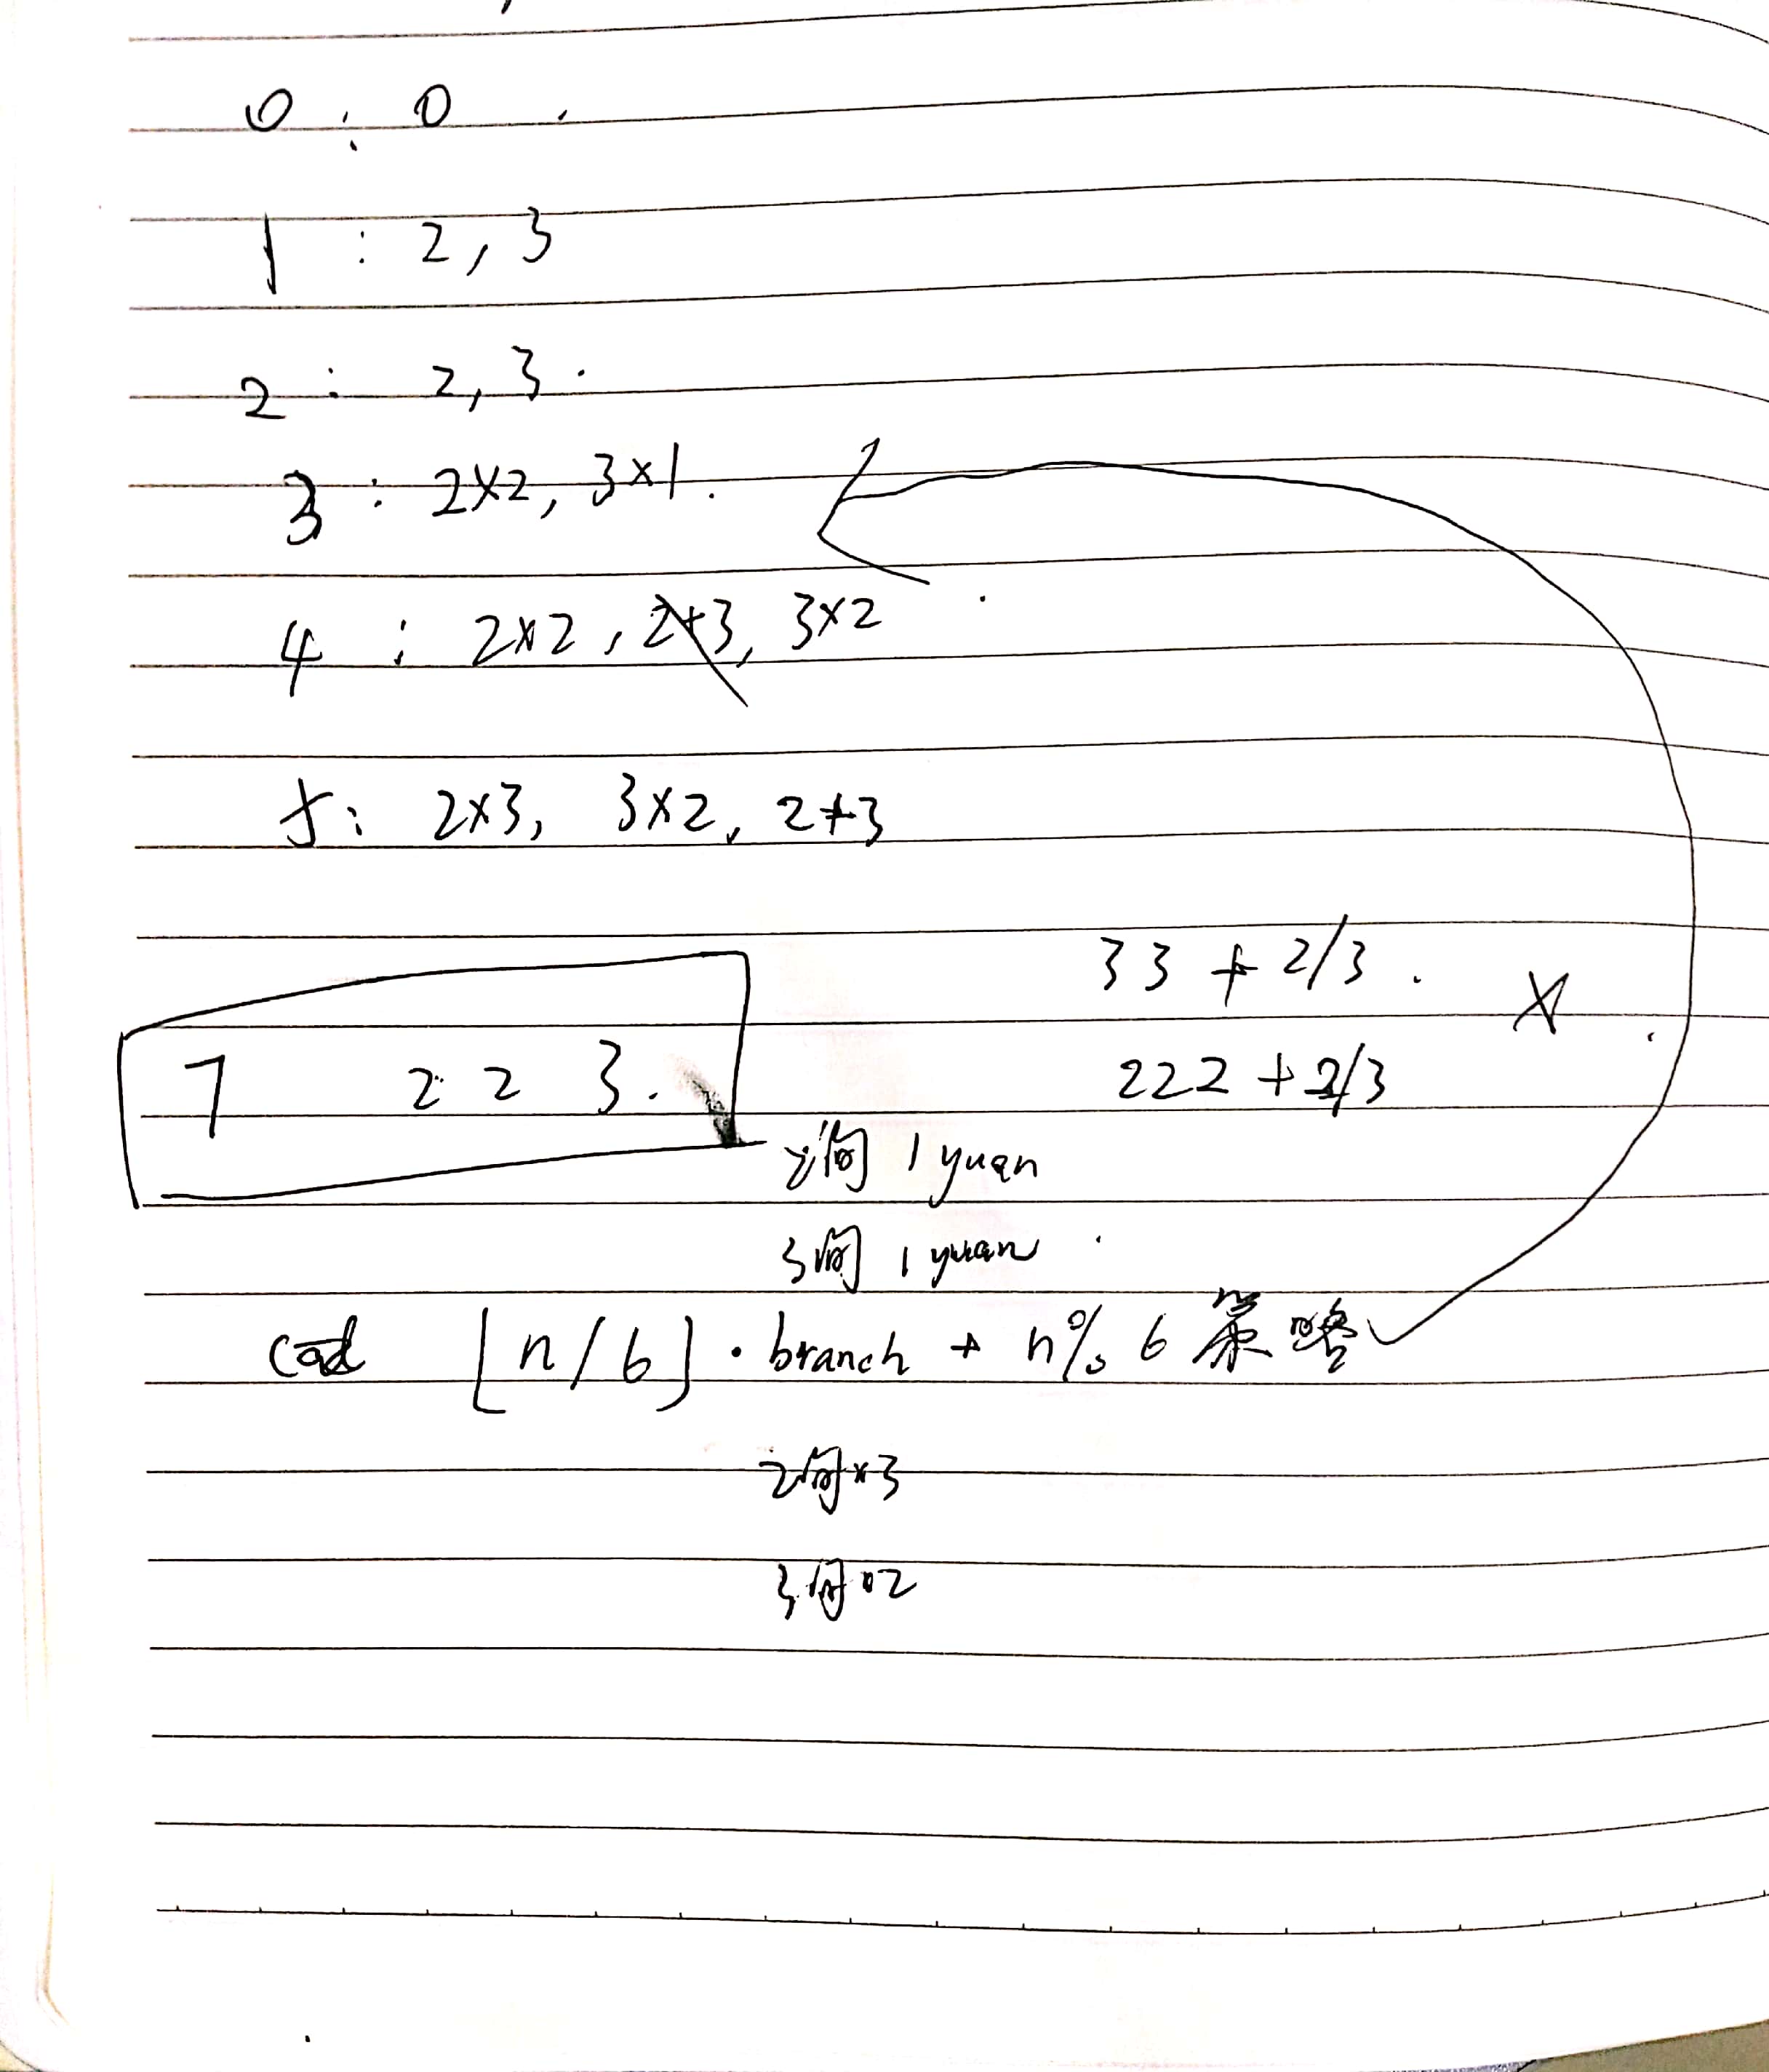 0 : 0 .
1 : 2, 3
2 : 2, 3 .
3 : 2×2, 3×1.
4 : 2×2, 2+3, 3×2
5: 2×3, 3×2, 2+3
33 + 2/3 .
7 2 2 3.
222 + 2/3
2间 1 yuan
3间 1 yuan
[n/6] · branch + n%6 策略
2间×3
3间×2